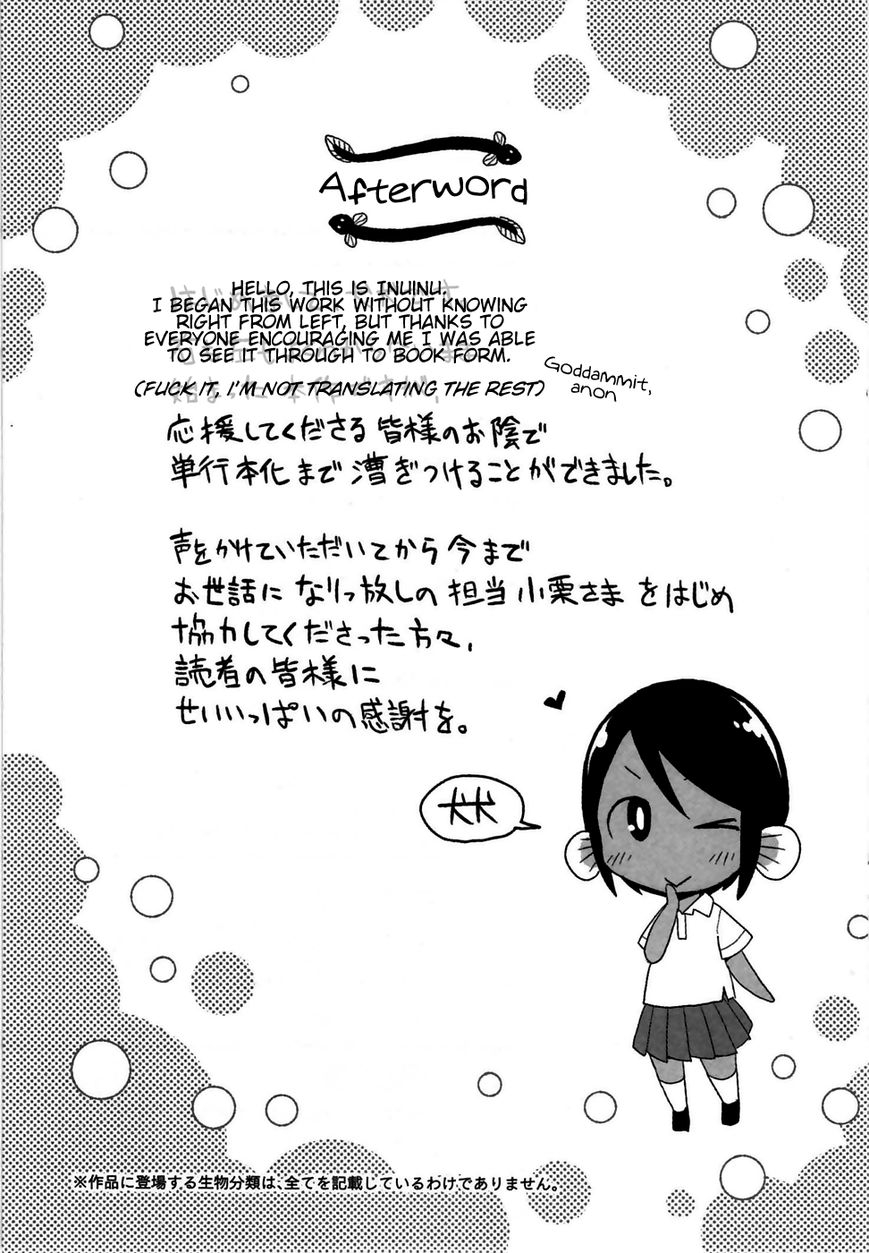 Afterword
HELLO, THIS IS INUINU.
I BEGAN THIS WORK WITHOUT KNOWING
RIGHT FROM LEFT, BUT THANKS TO
EVERYONE ENCOURAGING ME I WAS ABLE
TO SEE IT THROUGH TO BOOK FORM.
(FUCK IT, I'M NOT TRANSLATING THE REST)
Goddammit,
anon
応援してくださる皆様のお陰で
単行本化まで漕ぎつけることができました。
声をかけていただいてから今まで
お世話になりっ放しの担当小栗さまをはじめ
協力してくださった方々、
読者の皆様に
せいいっぱいの感謝を。
犬犬
※作品に登場する生物分類は、全てを記載しているわけでありません。